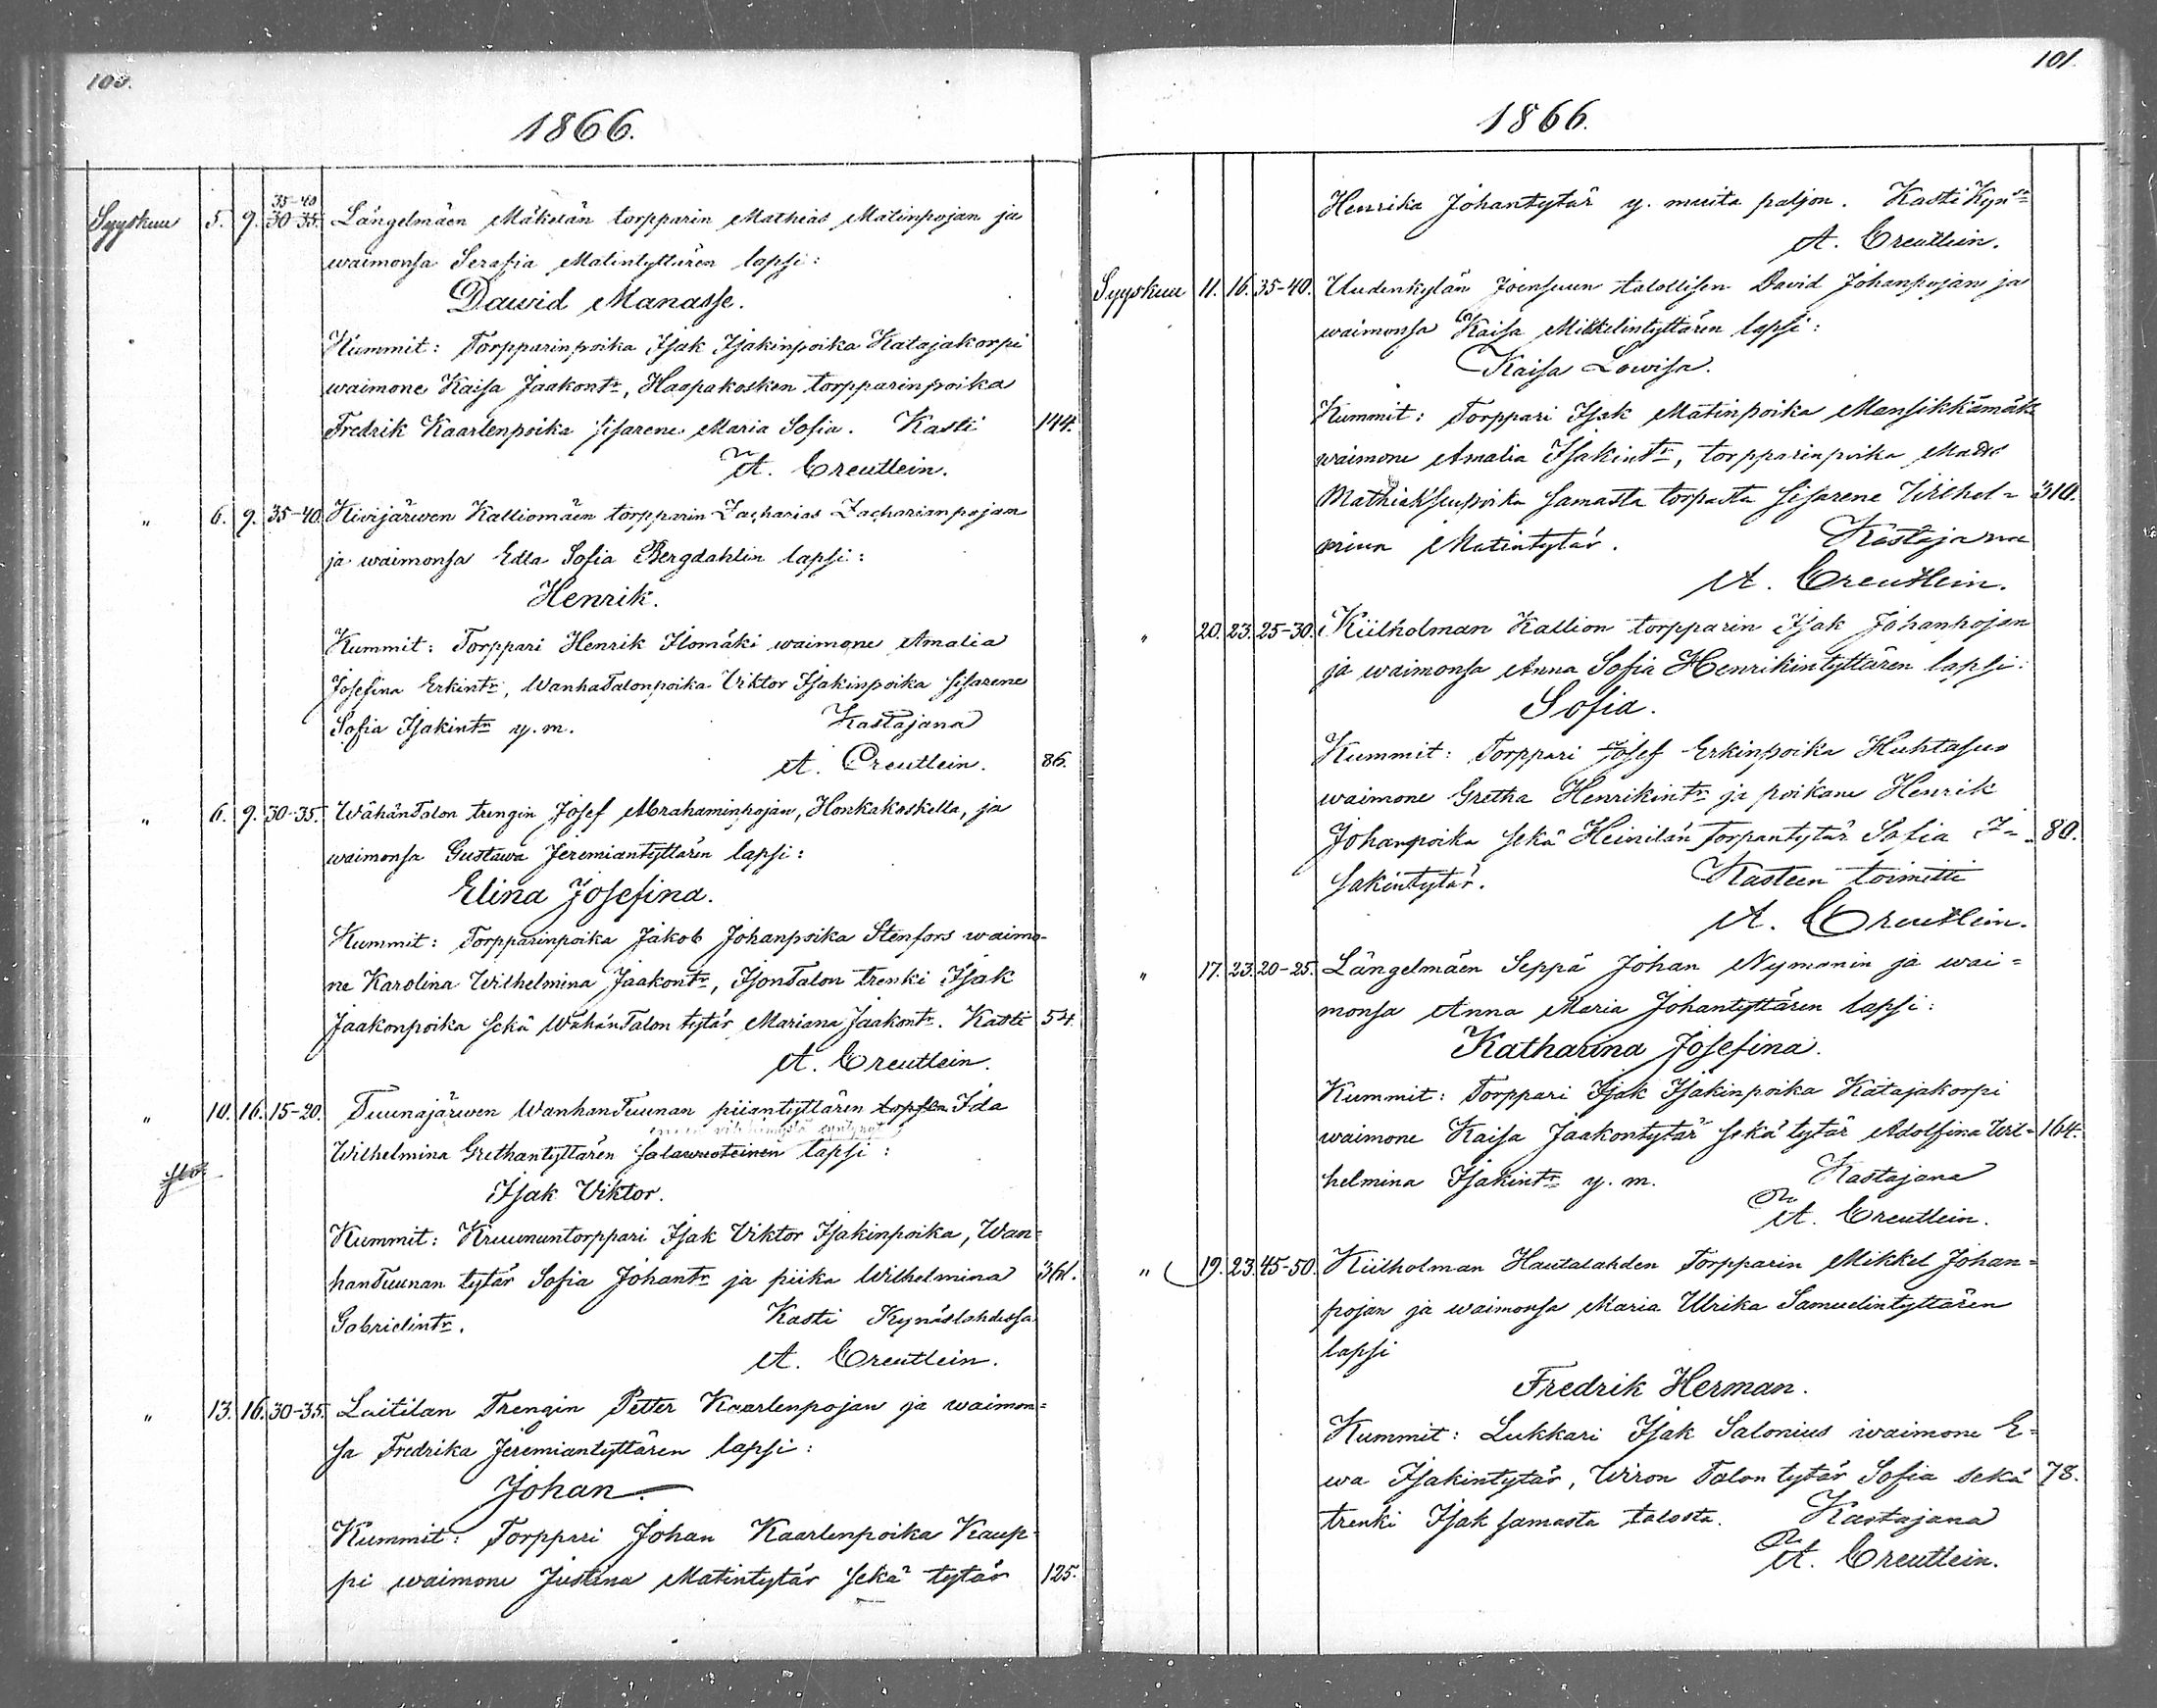 100.
1866.
Syyskuu 5. 9. 35-40 30-35. Längelmäen Mäkelän torpparin Mathias Matinpojan ja
waimonsa Serafia Matintyttären lapsi:
Dawid Manasse.
Kummit: Torpparinpoika Isak Isakinpoika Katajakorpi
waimone Kaisa Jaakontr, Haapakosken torpparinpoika
Fredrik Kaarlenpoika sisarene Maria Sofia. Kasti 144.
A. Creutlein.
" 6. 9. 35-40. Kivijärwen Kalliomäen torpparin Zacharias Zacharianpojan
ja waimonsa Edla Sofia Bergdahlin lapsi:
Henrik.
Kummit: Torppari Henrik Ilomäki waimone Amalia
Josefina Erkintr, WanhaTalonpoika Viktor Isakinpoika sisarene
Sofia Isakintr y. m. Kastajana
A. Creutlein. 86.
" 6. 9. 30-35. WähänTalon trengin Josef Abrahaminpojan, Honkakoskella, ja
waimonsa Gustawa Jeremiantyttären lapsi:
Elina Josefina.
Kummit: Torpparinpoika Jakob Johanpoika Stenfors waimo-
ne Karolina Wilhelmina Jaakontr, IsonTalon trenki Isak
Jaakonpoika sekä WähänTalon tytär Mariana Jaakontr. Kasti 54.
A. Creutlein.
" 10. 16. 15-20. Tuunajärwen WanhanTuunan piiantyttären Ida
Wilhelmina Grethantyttären salawuoteinen lapsi:
Isak Viktor.
Kummit: Kruununtorppari Isak Viktor Isakinpoika, Wan=
hanTuunan tytär Sofia Johantr ja piika Wilhelmina 361.
Gabrielintr. Kasti Kynäslahdessa
A. Creutlein.
" 13. 16. 30-35. Laitilan Trengin Petter Kaarlenpojan ja waimon=
sa Fredrika Jeremiantyttären lapsi:
Johan.
Kummit: Torppari Johan Kaarlenpoika Kaup-
pi waimone Justina Matintytär sekä tytär 125.
101.
1866.
Henrika Johantytär y. muita paljon. Kasti Kynsa
A. Creutlein.
Syyskuu 11. 16. 35-40. Uudenkylän Joensuun talollisen David Johanpojan ja
waimonsa Kaisa Mikkelintyttären lapsi:
Kaisa Lowisa.
Kummit: Torppari Isak Matinpoika Mansikkämäki
waimone Amalia Isakintr, torpparinpoika
Mathiaksenpoika samasta torpasta sisarene Wilhel= 310.
mina Matintytär. Kastajana
A. Creutlein.
" 20. 23. 25-30. Kiilholman Kallion torpparin Isak Johanpojan
ja waimonsa Anna Sofia Henrikintyttären lapsi:
Sofia.
Kummit: Torppari Josef Erkinpoika Huhtasuo
waimone Gretha Henrikintr ja poikane Henrik
Johanpoika sekä Heinilän Torpantytär Sofia I= 80.
sakintytär. Kasteen toimitti
A. Creutlein.
" 17. 23. 20-25. Längelmäen Seppä Johan Nymanin ja wai=
monsa Anna Maria Johantyttären lapsi:
Katharina Josefina.
Kummit: Torppari Isak Isakinpoika Katajakorpi
waimone Kaisa Jaakontytär sekä tytär Adolfina Wil= 164.
helmina Isakintr y. m. Kastajana
A. Creutlein.
" 19. 23. 45-50. Kiilholman Hautalahden Torpparin Mikkel Johan=
pojan ja waimonsa Maria Ulrika Samuelintyttären
lapsi
Fredrik Herman.
Kummit: Lukkari Isak Salonius waimone E=
wa Isakintytär, Wiron Talon tytär Sofia sekä 78.
trenki Isak samasta talosta. Kastajana
A. Creutlein.